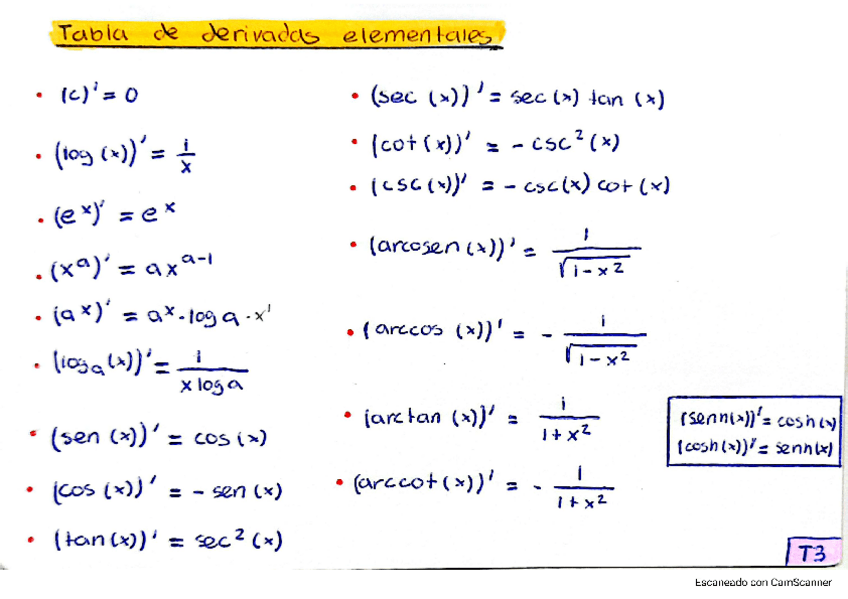 Tabla de derivadas elementales
• (c)' = 0
• (log (x))' = 1/x
• (e^x)' = e^x
• (x^a)' = a x^(a-1)
• (a^x)' = a^x · log a · x'
• (log_a (x))' = 1/(x log a)
• (sen (x))' = cos (x)
• (cos (x))' = - sen (x)
• (tan (x))' = sec² (x)
• (sec (x))' = sec (x) tan (x)
• (cot (x))' = - csc² (x)
• (csc (x))' = - csc (x) cot (x)
• (arcosen (x))' = 1/√(1-x²)
• (arccos (x))' = - 1/√(1-x²)
• (arctan (x))' = 1/(1+x²)
• (arccot (x))' = - 1/(1+x²)
(senh(x))' = cosh(x)
(cosh(x))' = senh(x)
T3
Escaneado con CamScanner